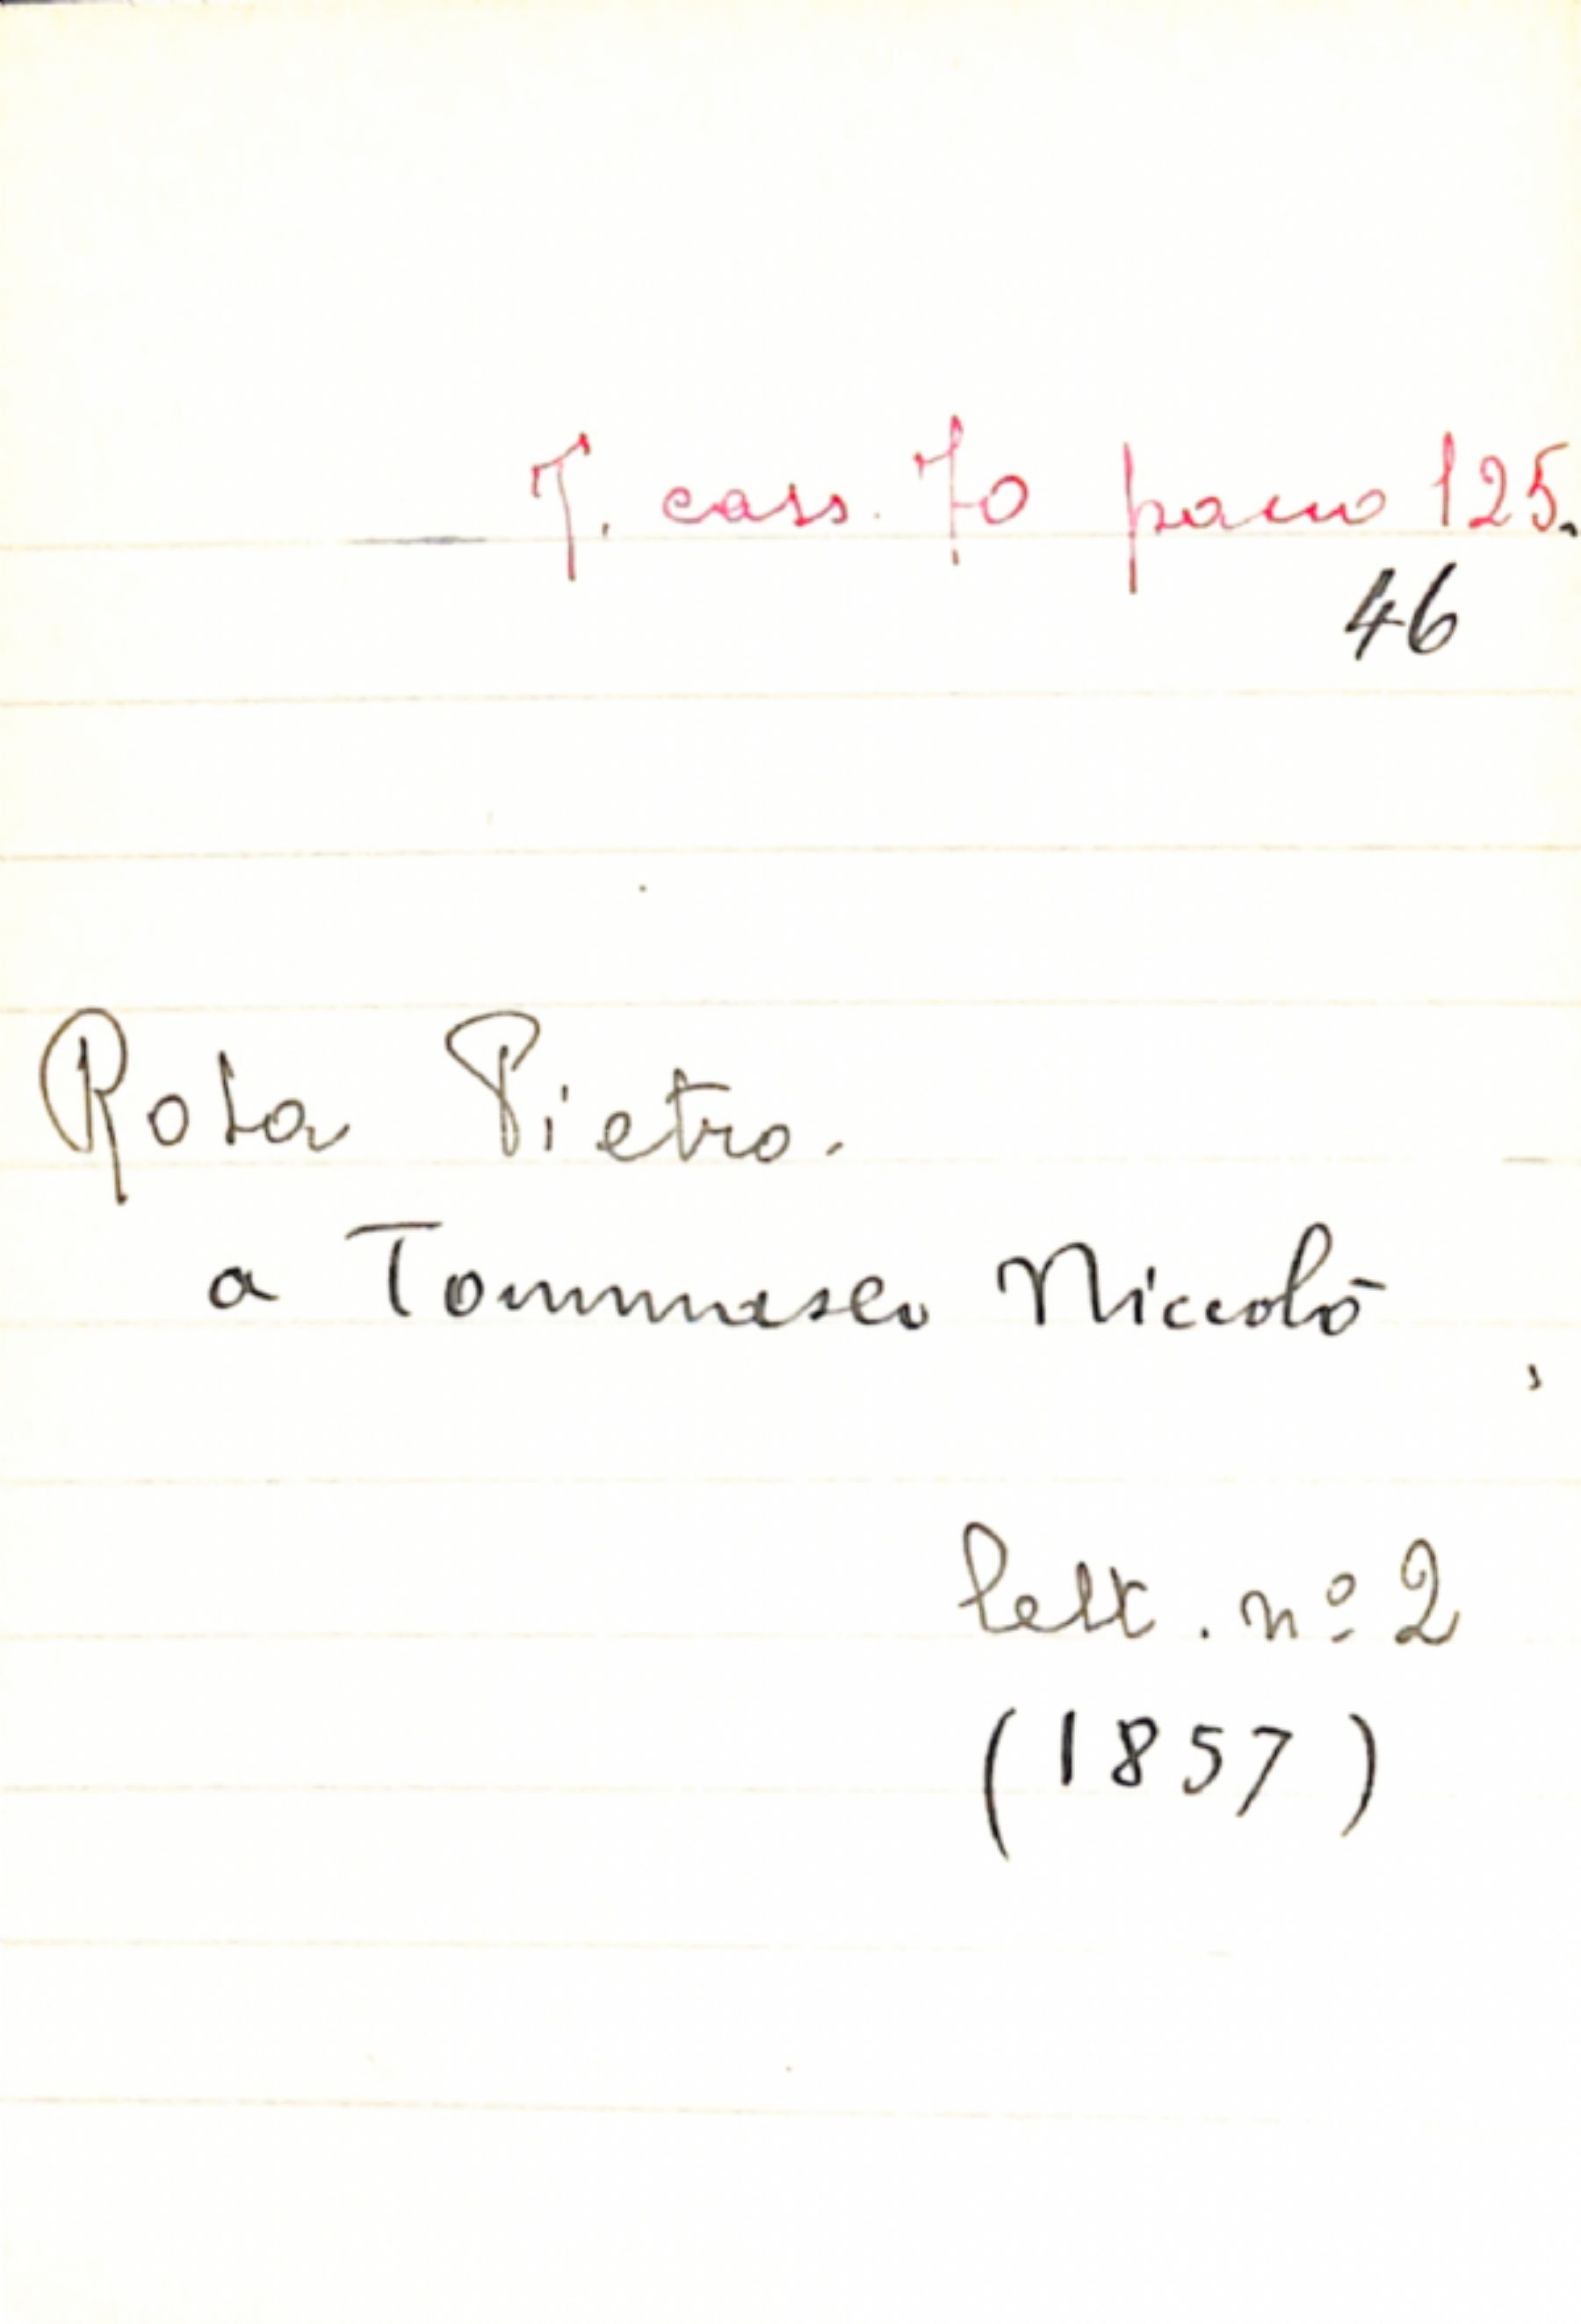 T. cass. 70 pacco 125.
46
Rota Pietro.
a Tommaseo Niccolò
lett. nº 2
(1857)